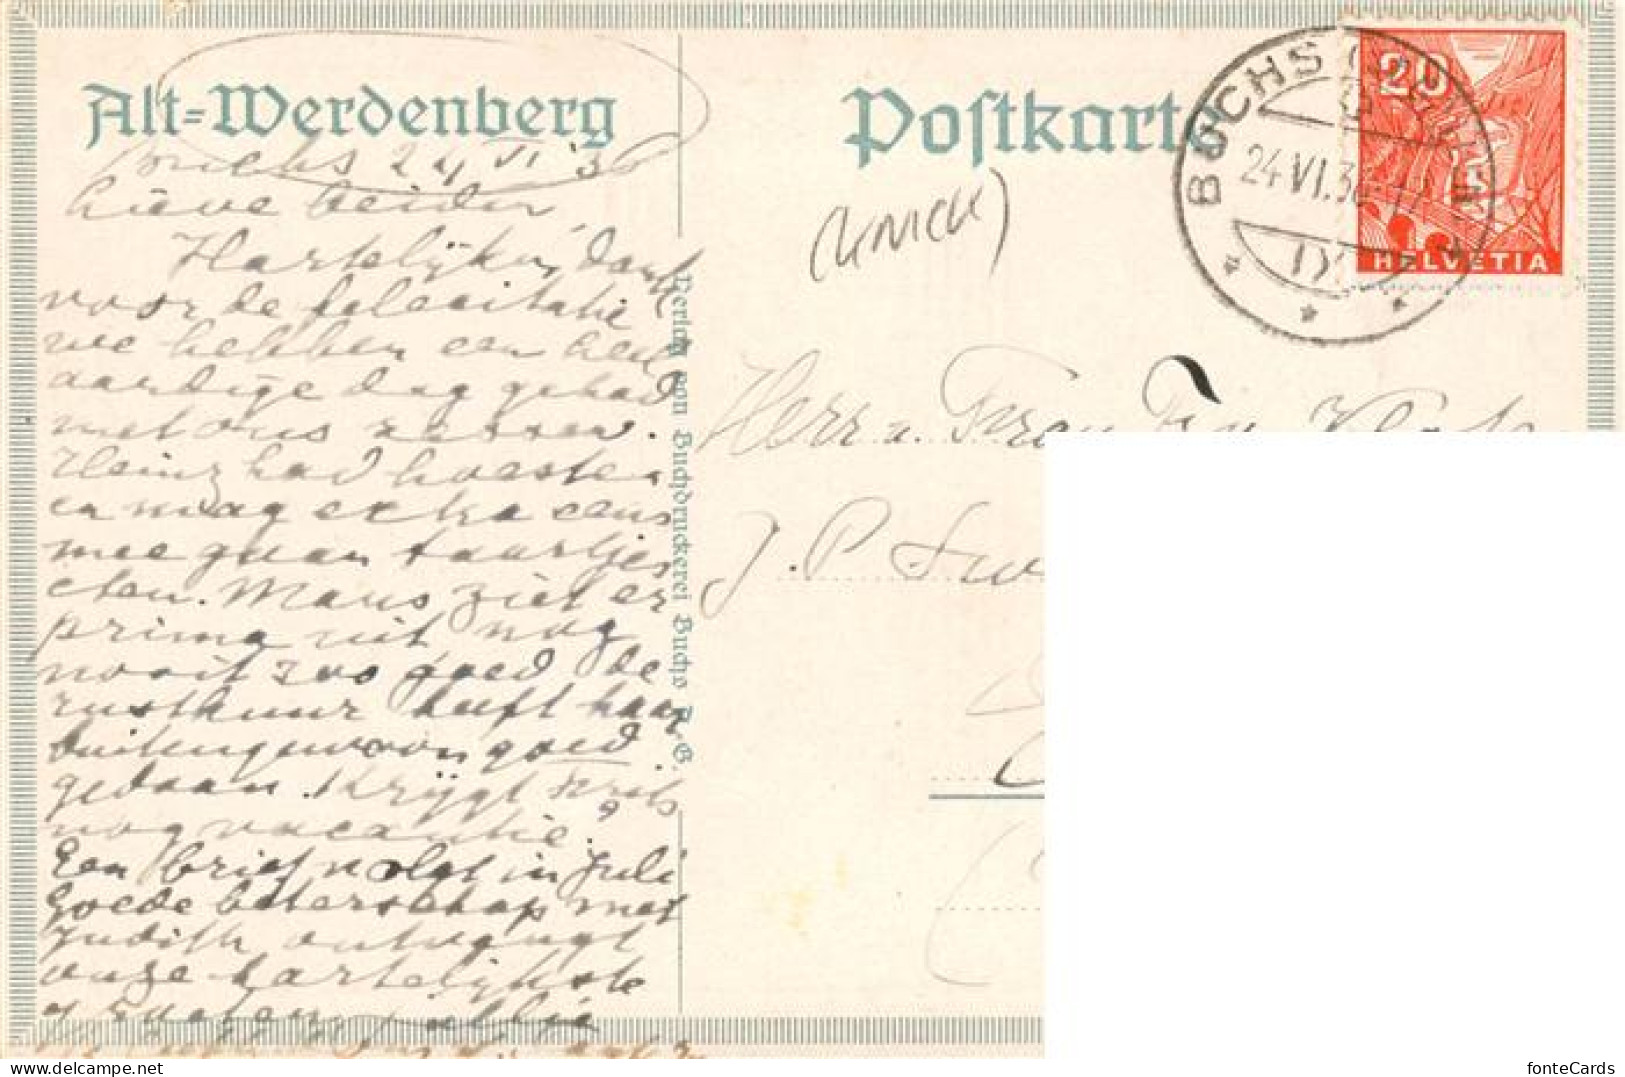 Alt-Werdenberg
Buchs 24 VI '36
Lieve beiden
Hartelijken dank
voor de felicitatie
we hebben een heel
aardige dag gehad
met ons zessen.
Heinz had hoesten
en mag extra eens
mee gaan taartjes
eten. Mans ziet er
prima uit nog
nooit zoo goed de
rustkuur heeft haar
buitengewoon goed
gedaan. Krijgt Frits
nog vacantie?
Een brief volgt in Juli
Goede beterschap met
Judith ontvangt
onze hartelijkste
groeten
Verlag von Buchdruckerei Buchs A.-G.
Postkarte
BUCHS
24.VI.36-17
IX
20
HELVETIA
Herr u. Frau
J. P.
fonteCards